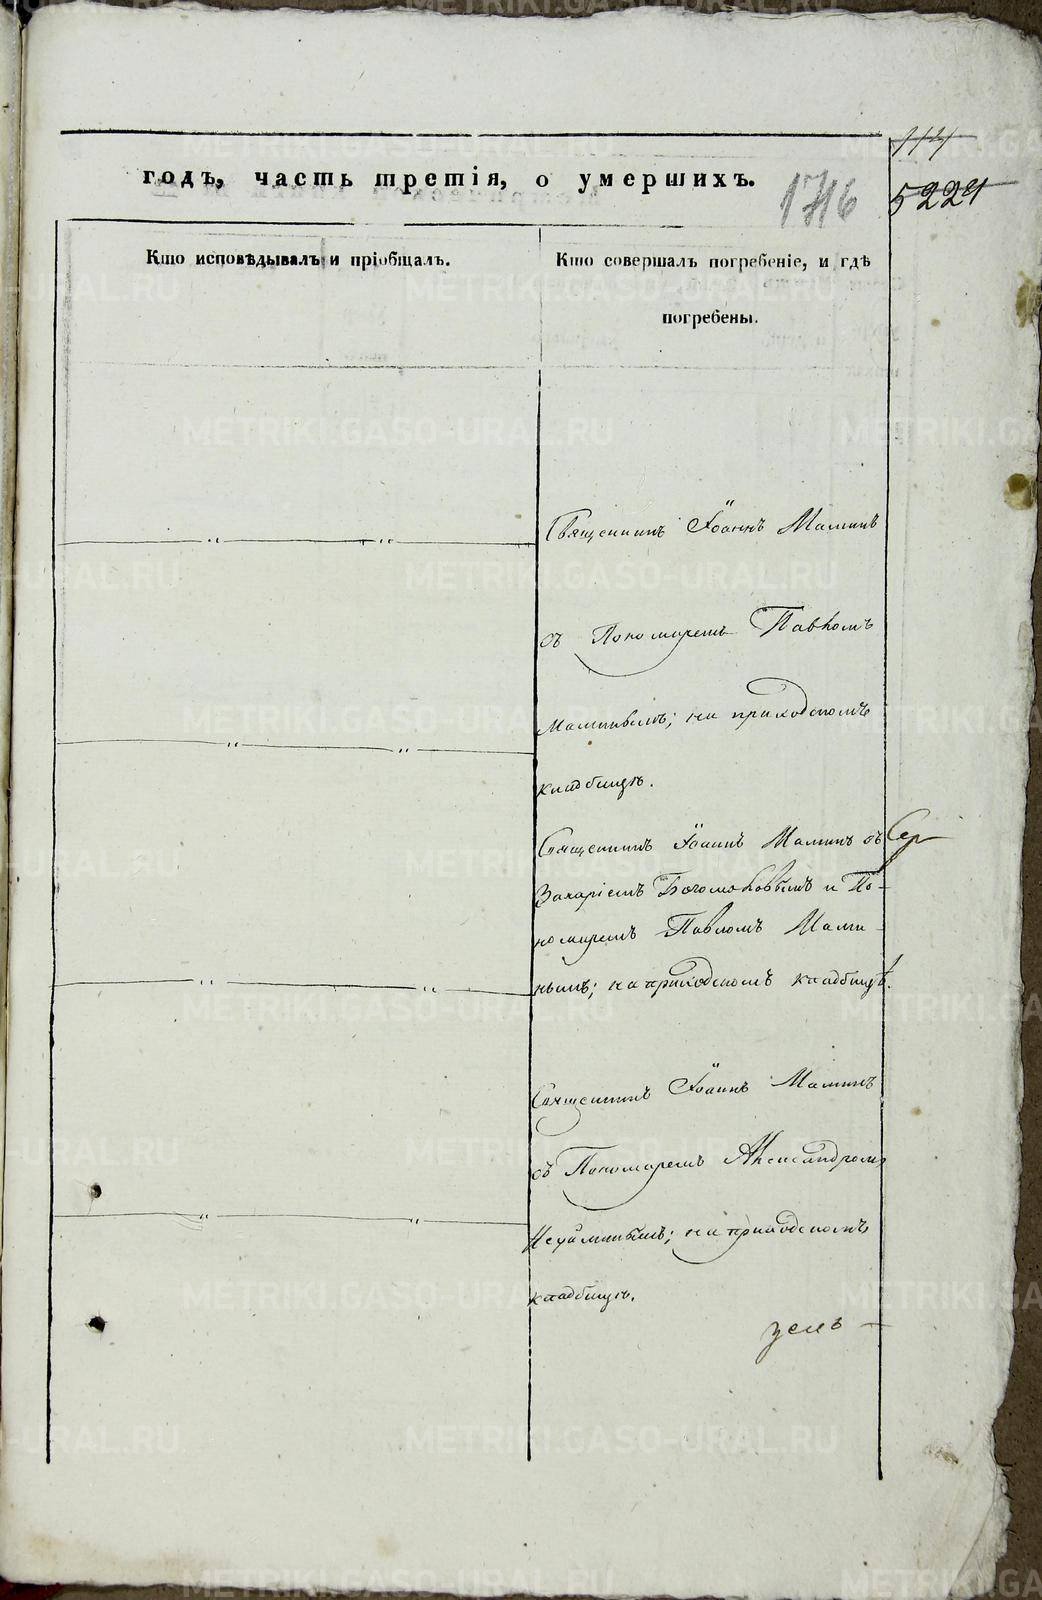 114
годъ, часть третія, о умершихъ.
1716
522
Кто исповѣдывалъ и пріобщалъ.
Кто совершалъ погребеніе, и гдѣ
погребены.
Священникъ Іоаннъ Маминъ
съ Пономаремъ Павломъ
Маминымъ; на приходскомъ
кладбищѣ.
Священникъ Іоаннъ Маминъ съ
Захаріемъ Богомоловымъ и По-
номаремъ Павломъ Мами-
нымъ; на приходскомъ кладбищѣ.
Священникъ Іоаннъ Маминъ
съ Пономаремъ Александромъ
на приходскомъ
кладбищѣ.
METRIKI.GASO-URAL.RU